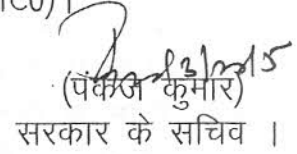 (पंकज कुमार)
सरकार के सचिव ।